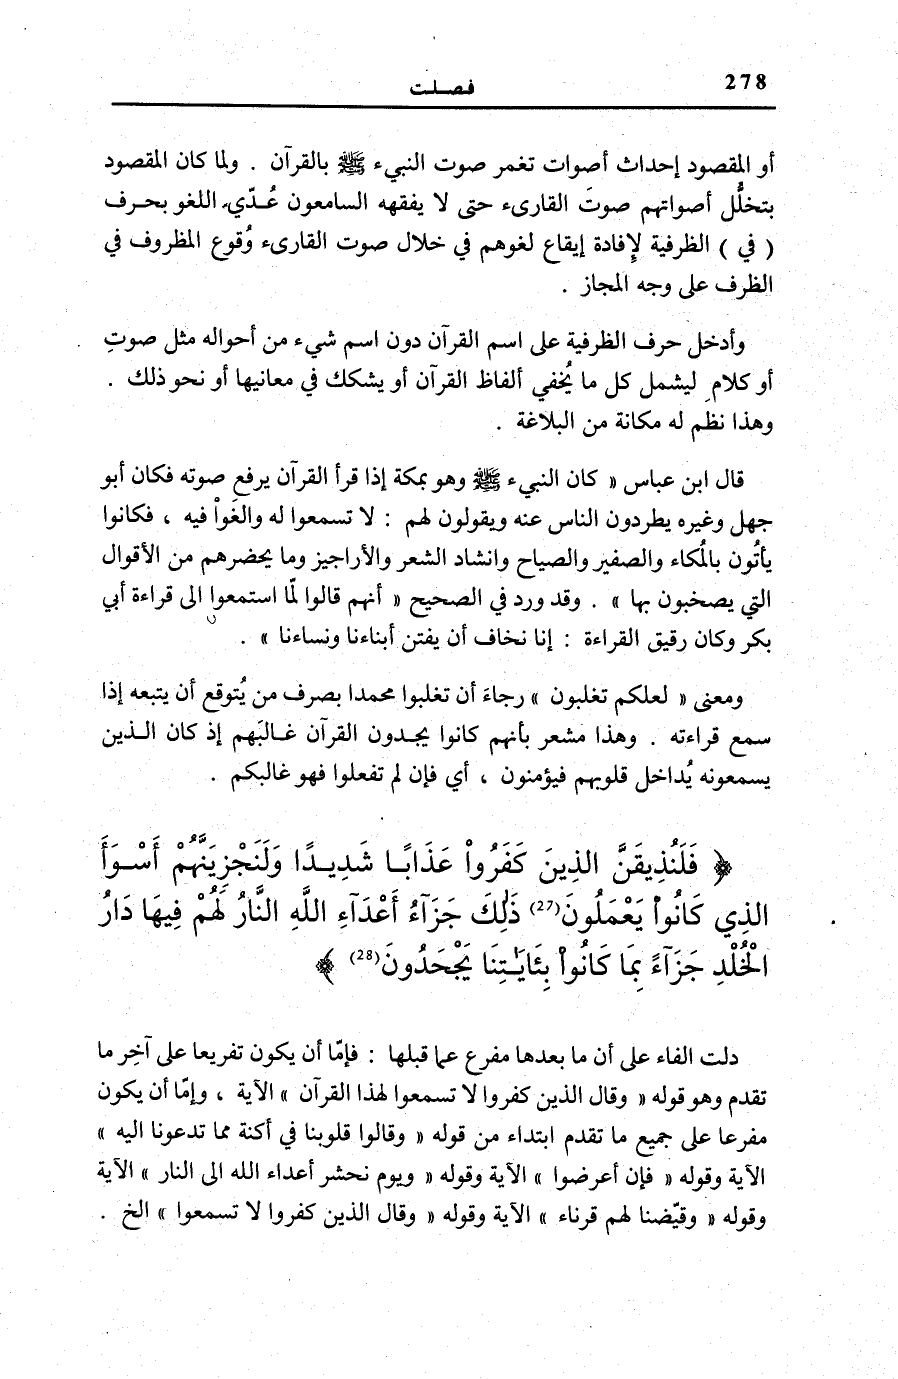 278
فصلت
أو المقصود إحداث أصوات تغمر صوت النبيء ﷺ بالقرآن . ولما كان المقصود
بتخلُّل أصواتهم صوتَ القارىء حتى لا يفقهه السامعون عُدّيَ اللغو بحرف
( في ) الظرفية لإفادة إيقاع لغوهم في خلال صوت القارىء وُقوع المظروف في
الظرف على وجه المجاز .
وأدخل حرف الظرفية على اسم القرآن دون اسم شيء من أحواله مثل صوتِ
أو كلامِ ليشمل كل ما يُخفي ألفاظ القرآن أو يشكك في معانيها أو نحو ذلك .
وهذا نظم له مكانة من البلاغة .
قال ابن عباس « كان النبيء ﷺ وهو بمكة إذا قرأ القرآن يرفع صوته فكان أبو
جهل وغيره يطردون الناس عنه ويقولون لهم : لا تسمعوا له والغَواْ فيه ، فكانوا
يأتُون بالمُكاء والصفير والصياح وانشاد الشعر والأراجيز وما يحضرهم من الأقوال
التي يصخبون بها » . وقد ورد في الصحيح « أنهم قالوا لمّا استمعوا الى قراءة أبي
بكر وكان رقيق القراءة : إنا نخاف أن يفتن أبناءنا ونساءنا » .
ومعنى « لعلكم تغلبون » رجاءَ أن تغلبوا محمدا بصرف من يُتوقع أن يتبعه إذا
سمع قراءته . وهذا مشعر بأنهم كانوا يجدون القرآن غالبَهم إذ كان الذين
يسمعونه يُداخل قلوبهم فيؤمنون ، أي فإن لم تفعلوا فهو غالبكم .
﴿ فَلَنُذِيقَنَّ الذِينَ كَفَرُواْ عَذَابًا شَدِيدًا وَلَنَجْزِيَنَّهُمْ أَسْوَأَ
الذِي كَانُواْ يَعْمَلُونَ(27) ذَٰلِكَ جَزَآءُ أَعْدَآءِ اللَّهِ النَّارُ لَهُمْ فِيهَا دَارُ
الْخُلْدِ جَزَآءً بِمَا كَانُواْ بِـَٔايَٰتِنَا يَجْحَدُونَ(28) ﴾
دلت الفاء على أن ما بعدها مفرع عما قبلها : فإمّا أن يكون تفريعا على آخِر ما
تقدم وهو قوله « وقال الذين كفروا لا تسمعوا لهذا القرآن » الآية ، وإمّا أن يكون
مفرعا على جميع ما تقدم ابتداء من قوله « وقالوا قلوبنا في أكنة مما تدعونا اليه »
الآية وقوله « فإن أعرضوا » الآية وقوله « ويوم نحشر أعداء الله الى النار » الآية
وقوله « وقيّضنا لهم قرناء » الآية وقوله « وقال الذين كفروا لا تسمعوا » الخ .